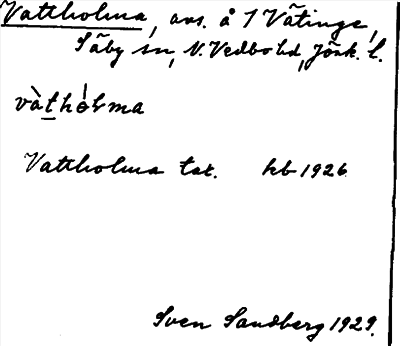 Vattholma, avs. å 1 Vätinge,
Säby sn, N. Vedbo hd, Jönk. l.
vàthólma
Vattholma tat. kb 1926
Sven Sandberg 1929.